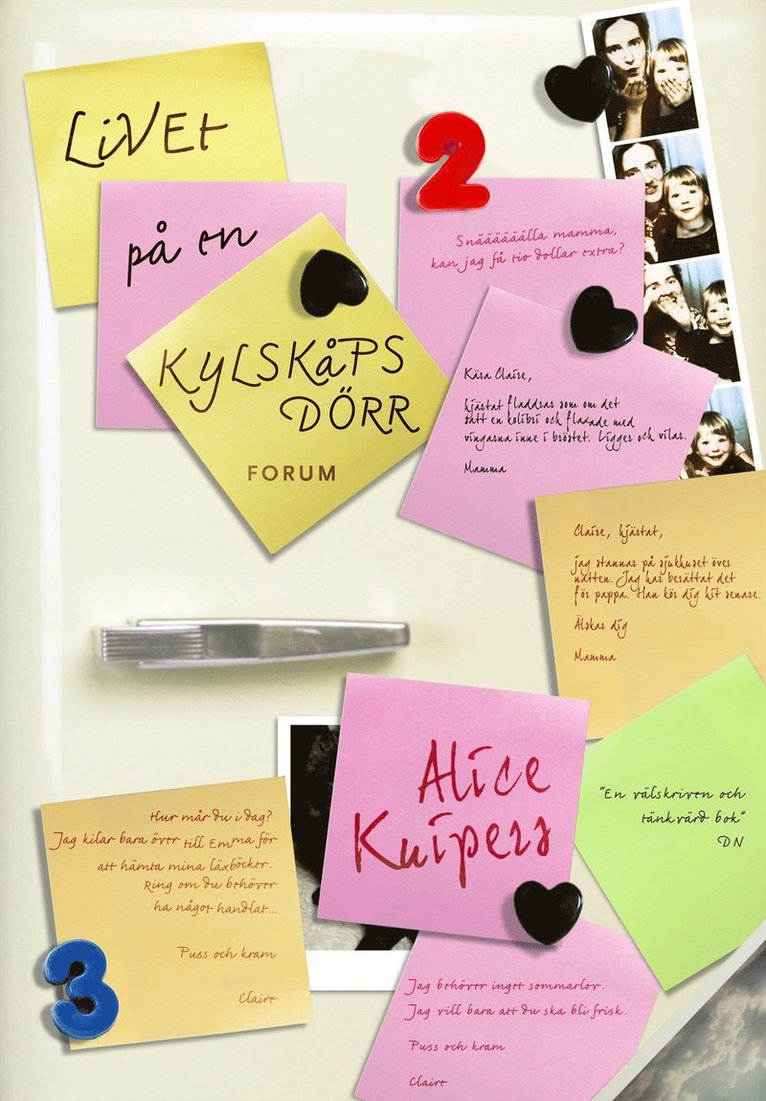 LiVEt
på en
KYLSKåPS
DÖRR
FORUM
2
Snäääääälla mamma,
kan jag få tio dollar extra?
Kära Claire,
hjärtat fladdrar som om det
satt en kolibri och flaxade med
vingarna inne i bröstet. Ligger och vilar.
Mamma
Claire, hjärtat,
jag stannar på sjukhuset över
natten. Jag har berättat det
för pappa. Han kör dig hit senare.
Älskar dig
Mamma
Alice
Kuipers
"En välskriven och
tänkvärd bok"
DN
Hur mår du i dag?
Jag kilar bara över till Emma för
att hämta mina läxböcker.
Ring om du behöver
ha något handlat...
Puss och kram
Claire
3
Jag behöver inget sommarlov.
Jag vill bara att du ska bli frisk.
Puss och kram
Claire